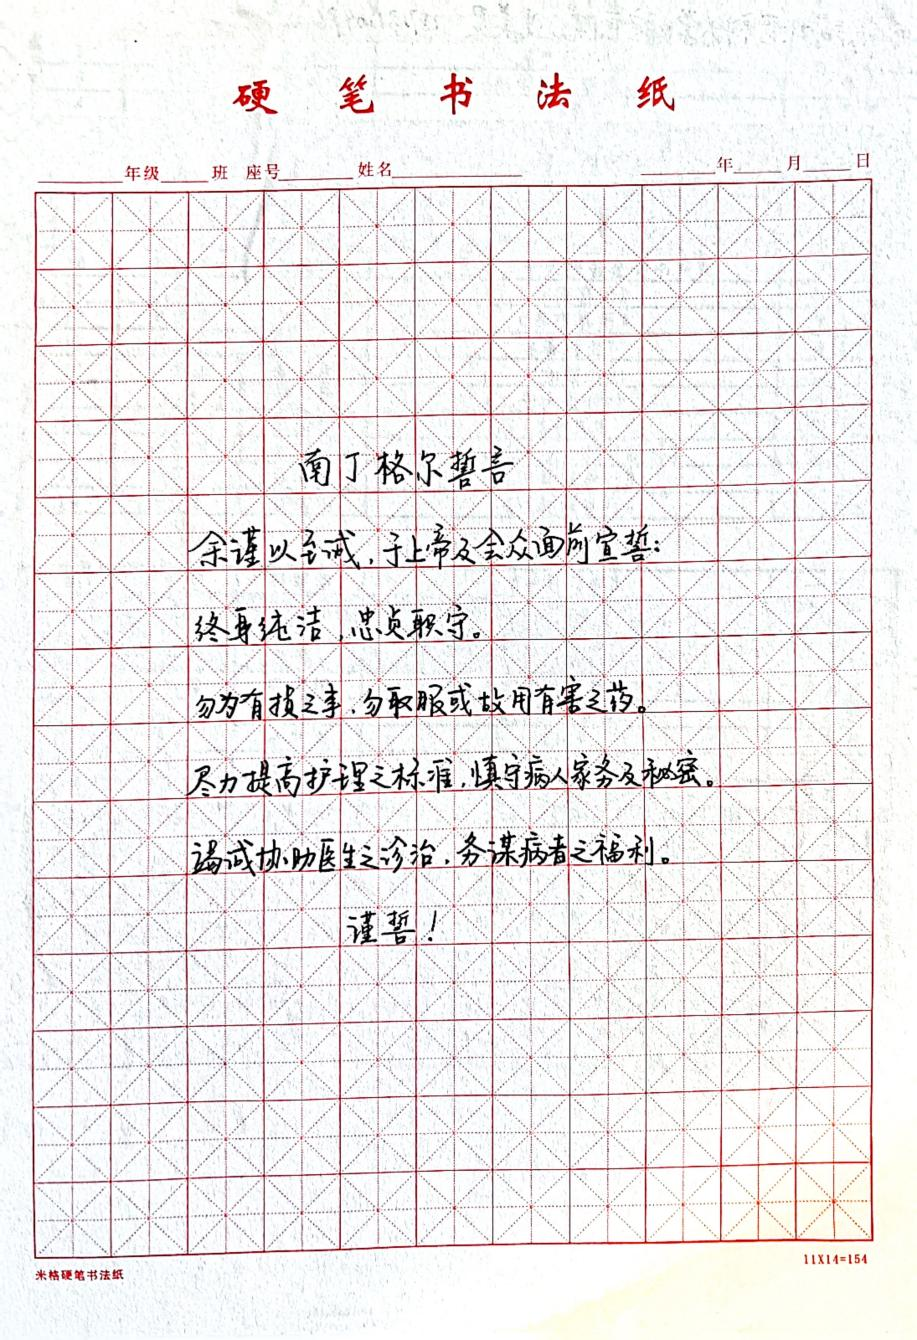 硬笔书法纸
年级 班 座号 姓名 年 月 日
南丁格尔誓言
余谨以至诚，于上帝及会众面前宣誓：
终身纯洁，忠贞职守。
勿为有损之事，勿取服或故用有害之药。
尽力提高护理之标准，慎守病人家务及秘密。
竭诚协助医生之诊治，务谋病者之福利。
谨誓！
米格硬笔书法纸 11X14=154